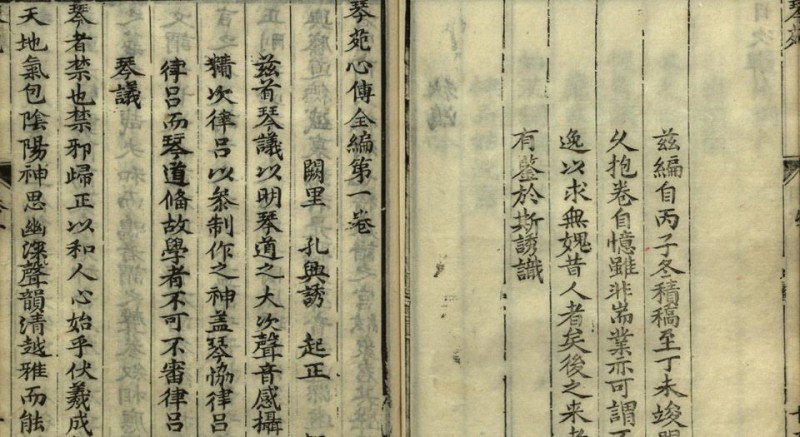 茲編自丙子冬積稿至丁未竣
久抱卷自憶雖非耑業亦可謂
逸以求無媿昔人者矣後之來者
有鑒於斯誘識
琴苑心傳全編第一卷
闕里 孔興誘 起正
茲首琴議以明琴道之大次聲音感攝
精次律呂以叅制作之神盖琴恊律呂
律呂而琴道偹故學者不可不審律呂
琴議
琴者禁也禁邪歸正以和人心始乎伏羲成
天地氣包陰陽神思幽深聲韻清越雅而能